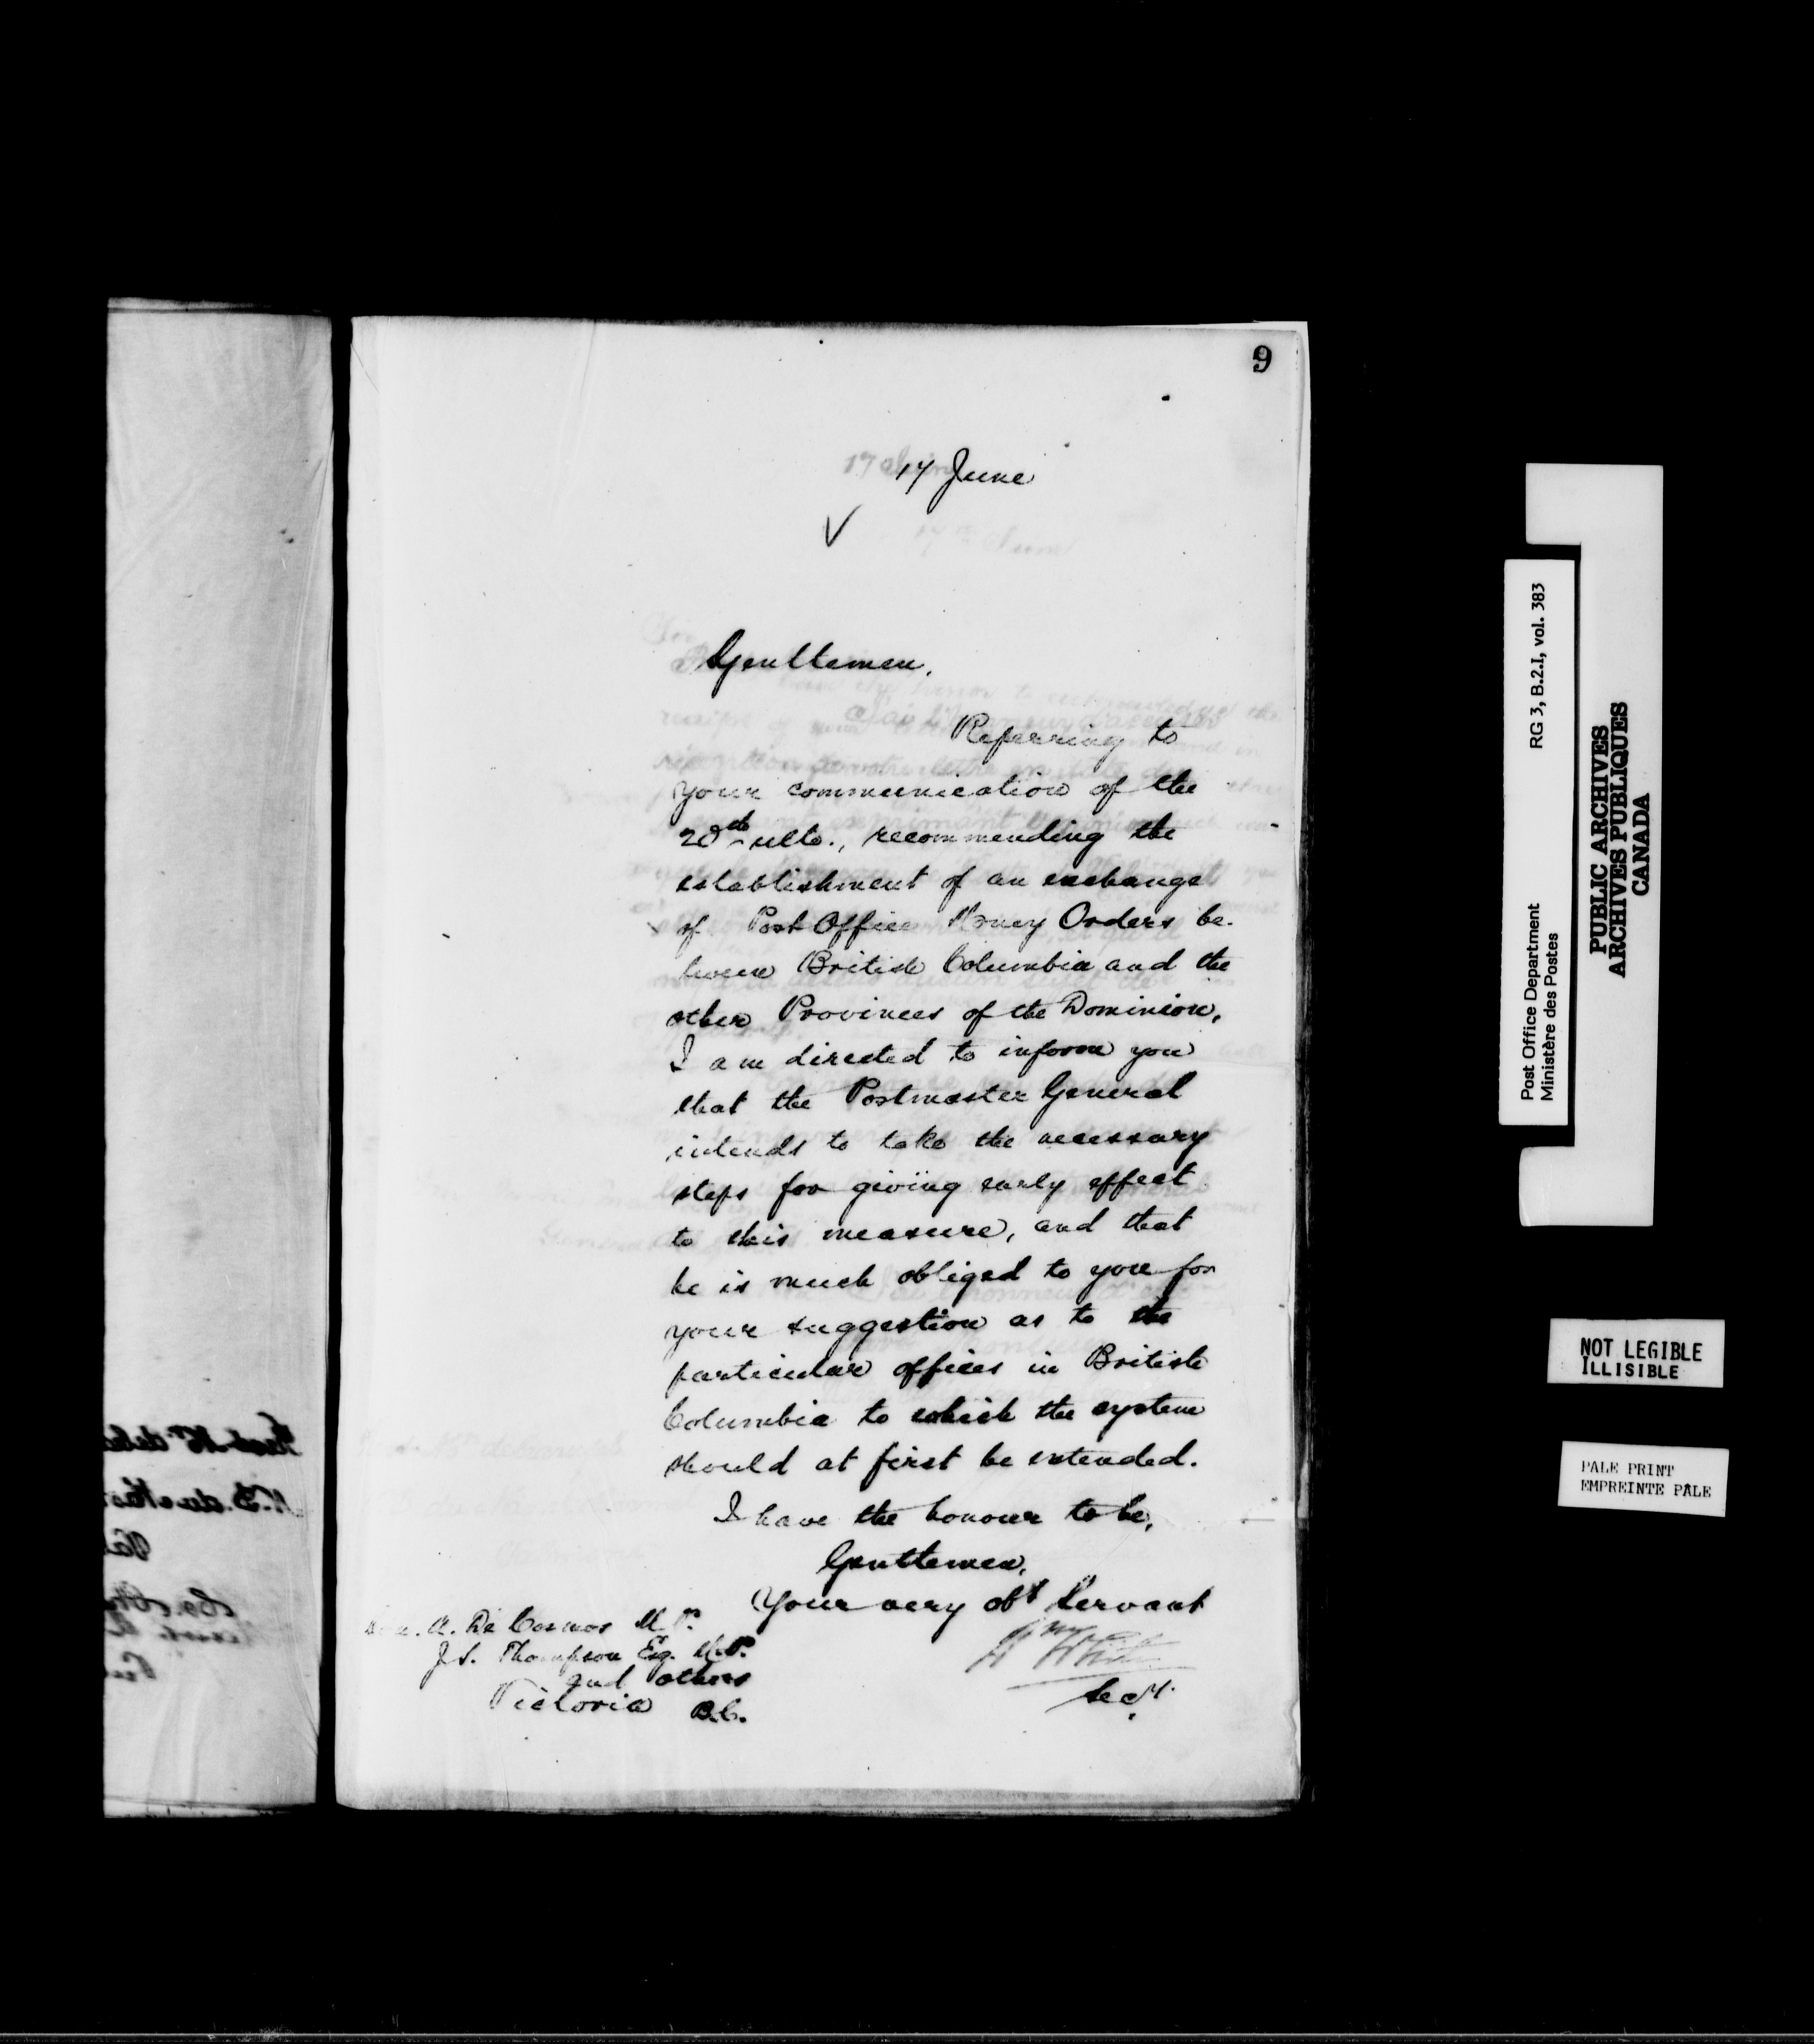 9
17 June
Gentlemen,
Referring to
your communication of the
28th ulto., recommending the
establishment of an exchange
of Post Office Money Orders be-
tween British Columbia and the
other Provinces of the Dominion,
I am directed to inform you
that the Postmaster General
intends to take the necessary
steps for giving early effect
to this measure, and that
he is much obliged to you for
your suggestion as to the
particular offices in British
Columbia to which the system
should at first be extended.
I have the honour to be,
Gentlemen,
Your very obt Servant
Secy.
A. De Cosmos M.P.
J.S. Thompson Esq. M.P.
and others
Victoria B.C.
Post Office Department RG 3, B.2.I, vol. 383
Ministère des Postes
PUBLIC ARCHIVES
ARCHIVES PUBLIQUES
CANADA
NOT LEGIBLE
ILLISIBLE
PALE PRINT
EMPREINTE PALE